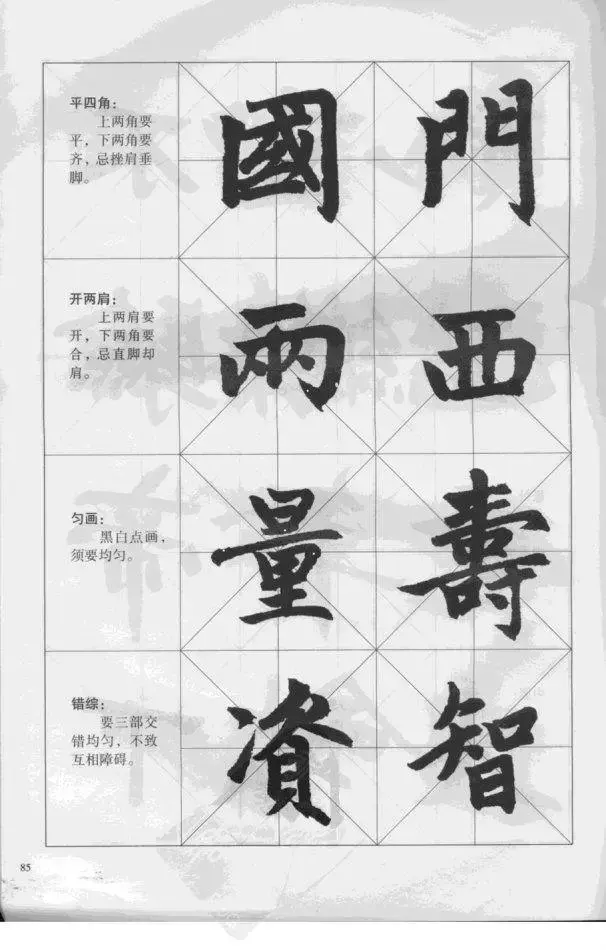 平四角：
上两角要
平，下两角要
齐，忌挫肩垂
脚。
國 門
开两肩：
上两肩要
开，下两角要
合，忌直脚却
肩。
兩 西
匀画：
黑白点画，
须要均匀。
量 壽
错综：
要三部交
错均匀，不致
互相障碍。
資 智
85